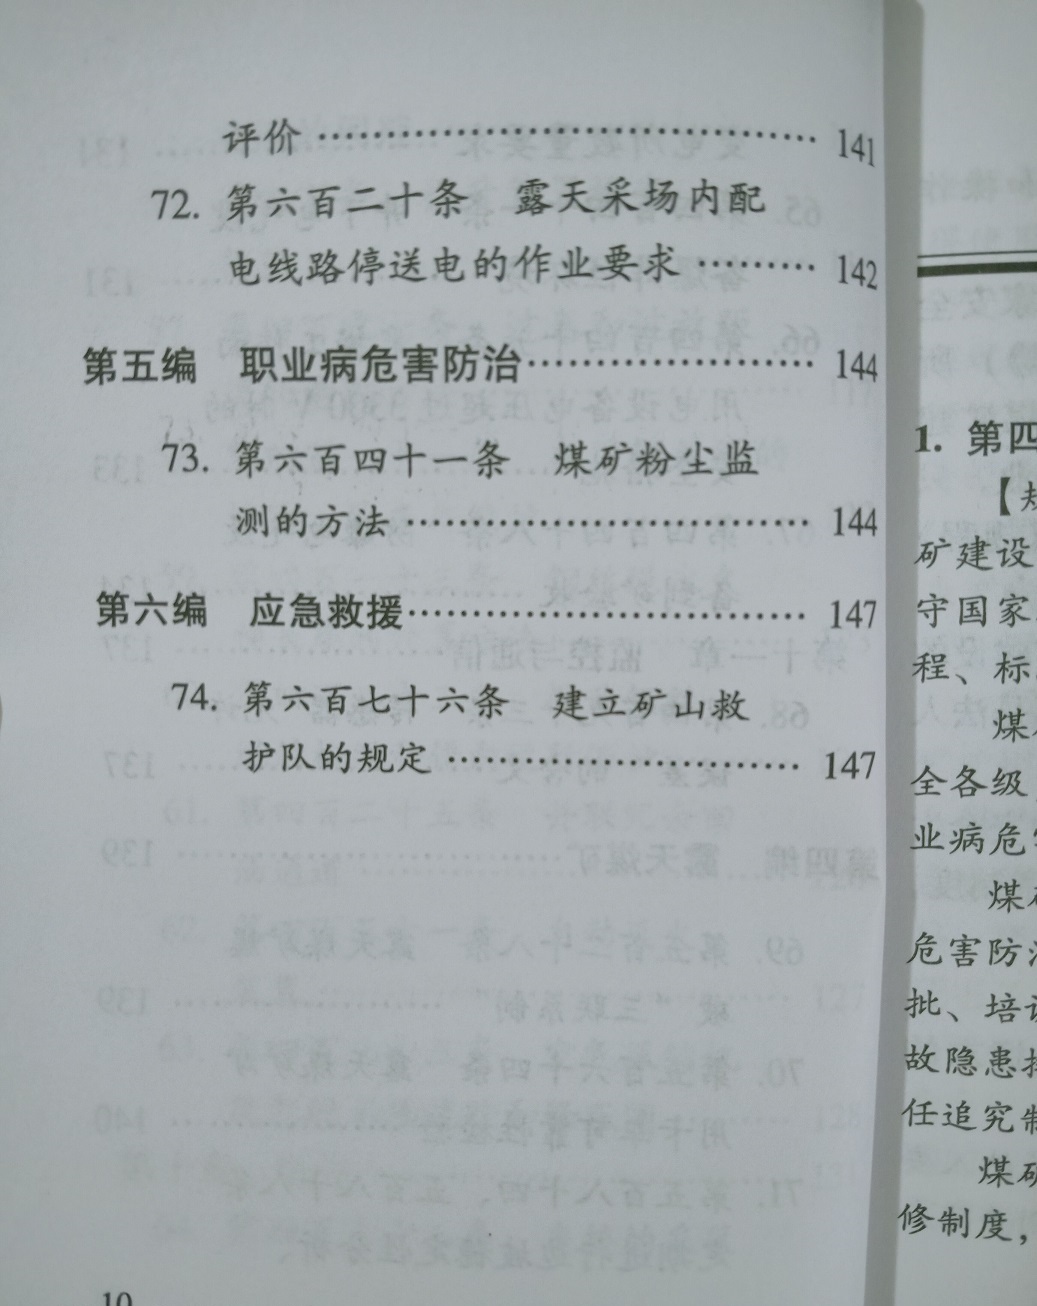 评价 …………………………………… 141
72. 第六百二十条 露天采场内配
电线路停送电的作业要求 ……… 142
第五编 职业病危害防治…………………… 144
73. 第六百四十一条 煤矿粉尘监
测的方法 …………………………… 144
第六编 应急救援…………………………… 147
74. 第六百七十六条 建立矿山救
护队的规定 ………………………… 147
10
1. 第四
【规
矿建设
守国家
程、标
煤
全各级
业病危害
煤矿
危害防治
批、培训
故隐患排
任追究制
煤矿
修制度，